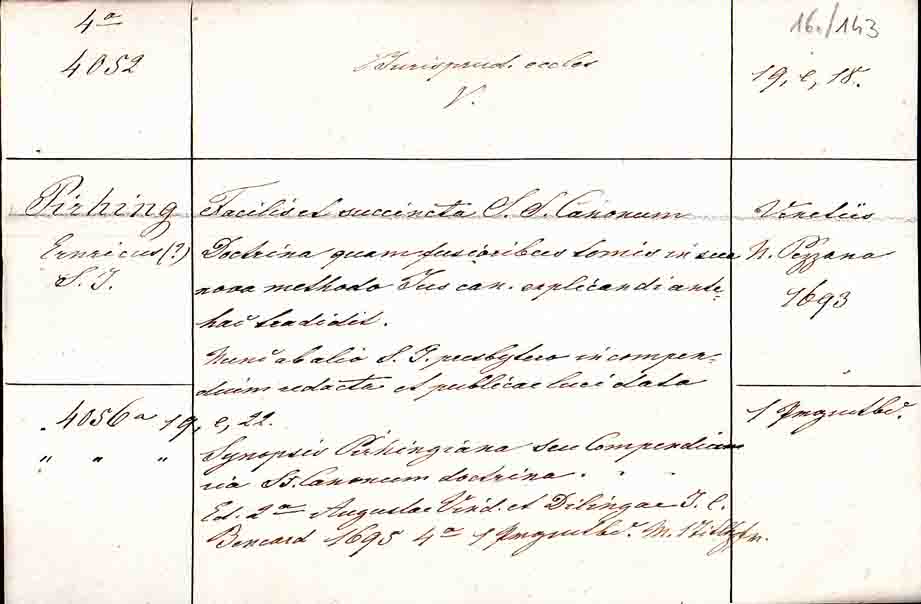 4a
4052
Jurisprud. eccles
V.
16./143
19, e, 18.
Pirhing
Ernricus (?)
S. J.
Facilis et succincta S. S. Canonum
Doctrina quam fusioribus tomis in sua
nova methodo Jus can. explicandi ante-
hac tradidit.
Nunc ab alio S. J. presbytero in compen-
dium redacta et publicae luci data
Venetiis
N. Pezzana
1693
1 Prgmtbd.
4056a 19, e, 22.
" " "
Synopsis Pirhingiana seu Compendia-
ria SS. Canonum doctrina.
Ed. 2a Augustae Vind. et Dilingae J. C.
Bencard 1695 4a 1 Prgmtbd. M.